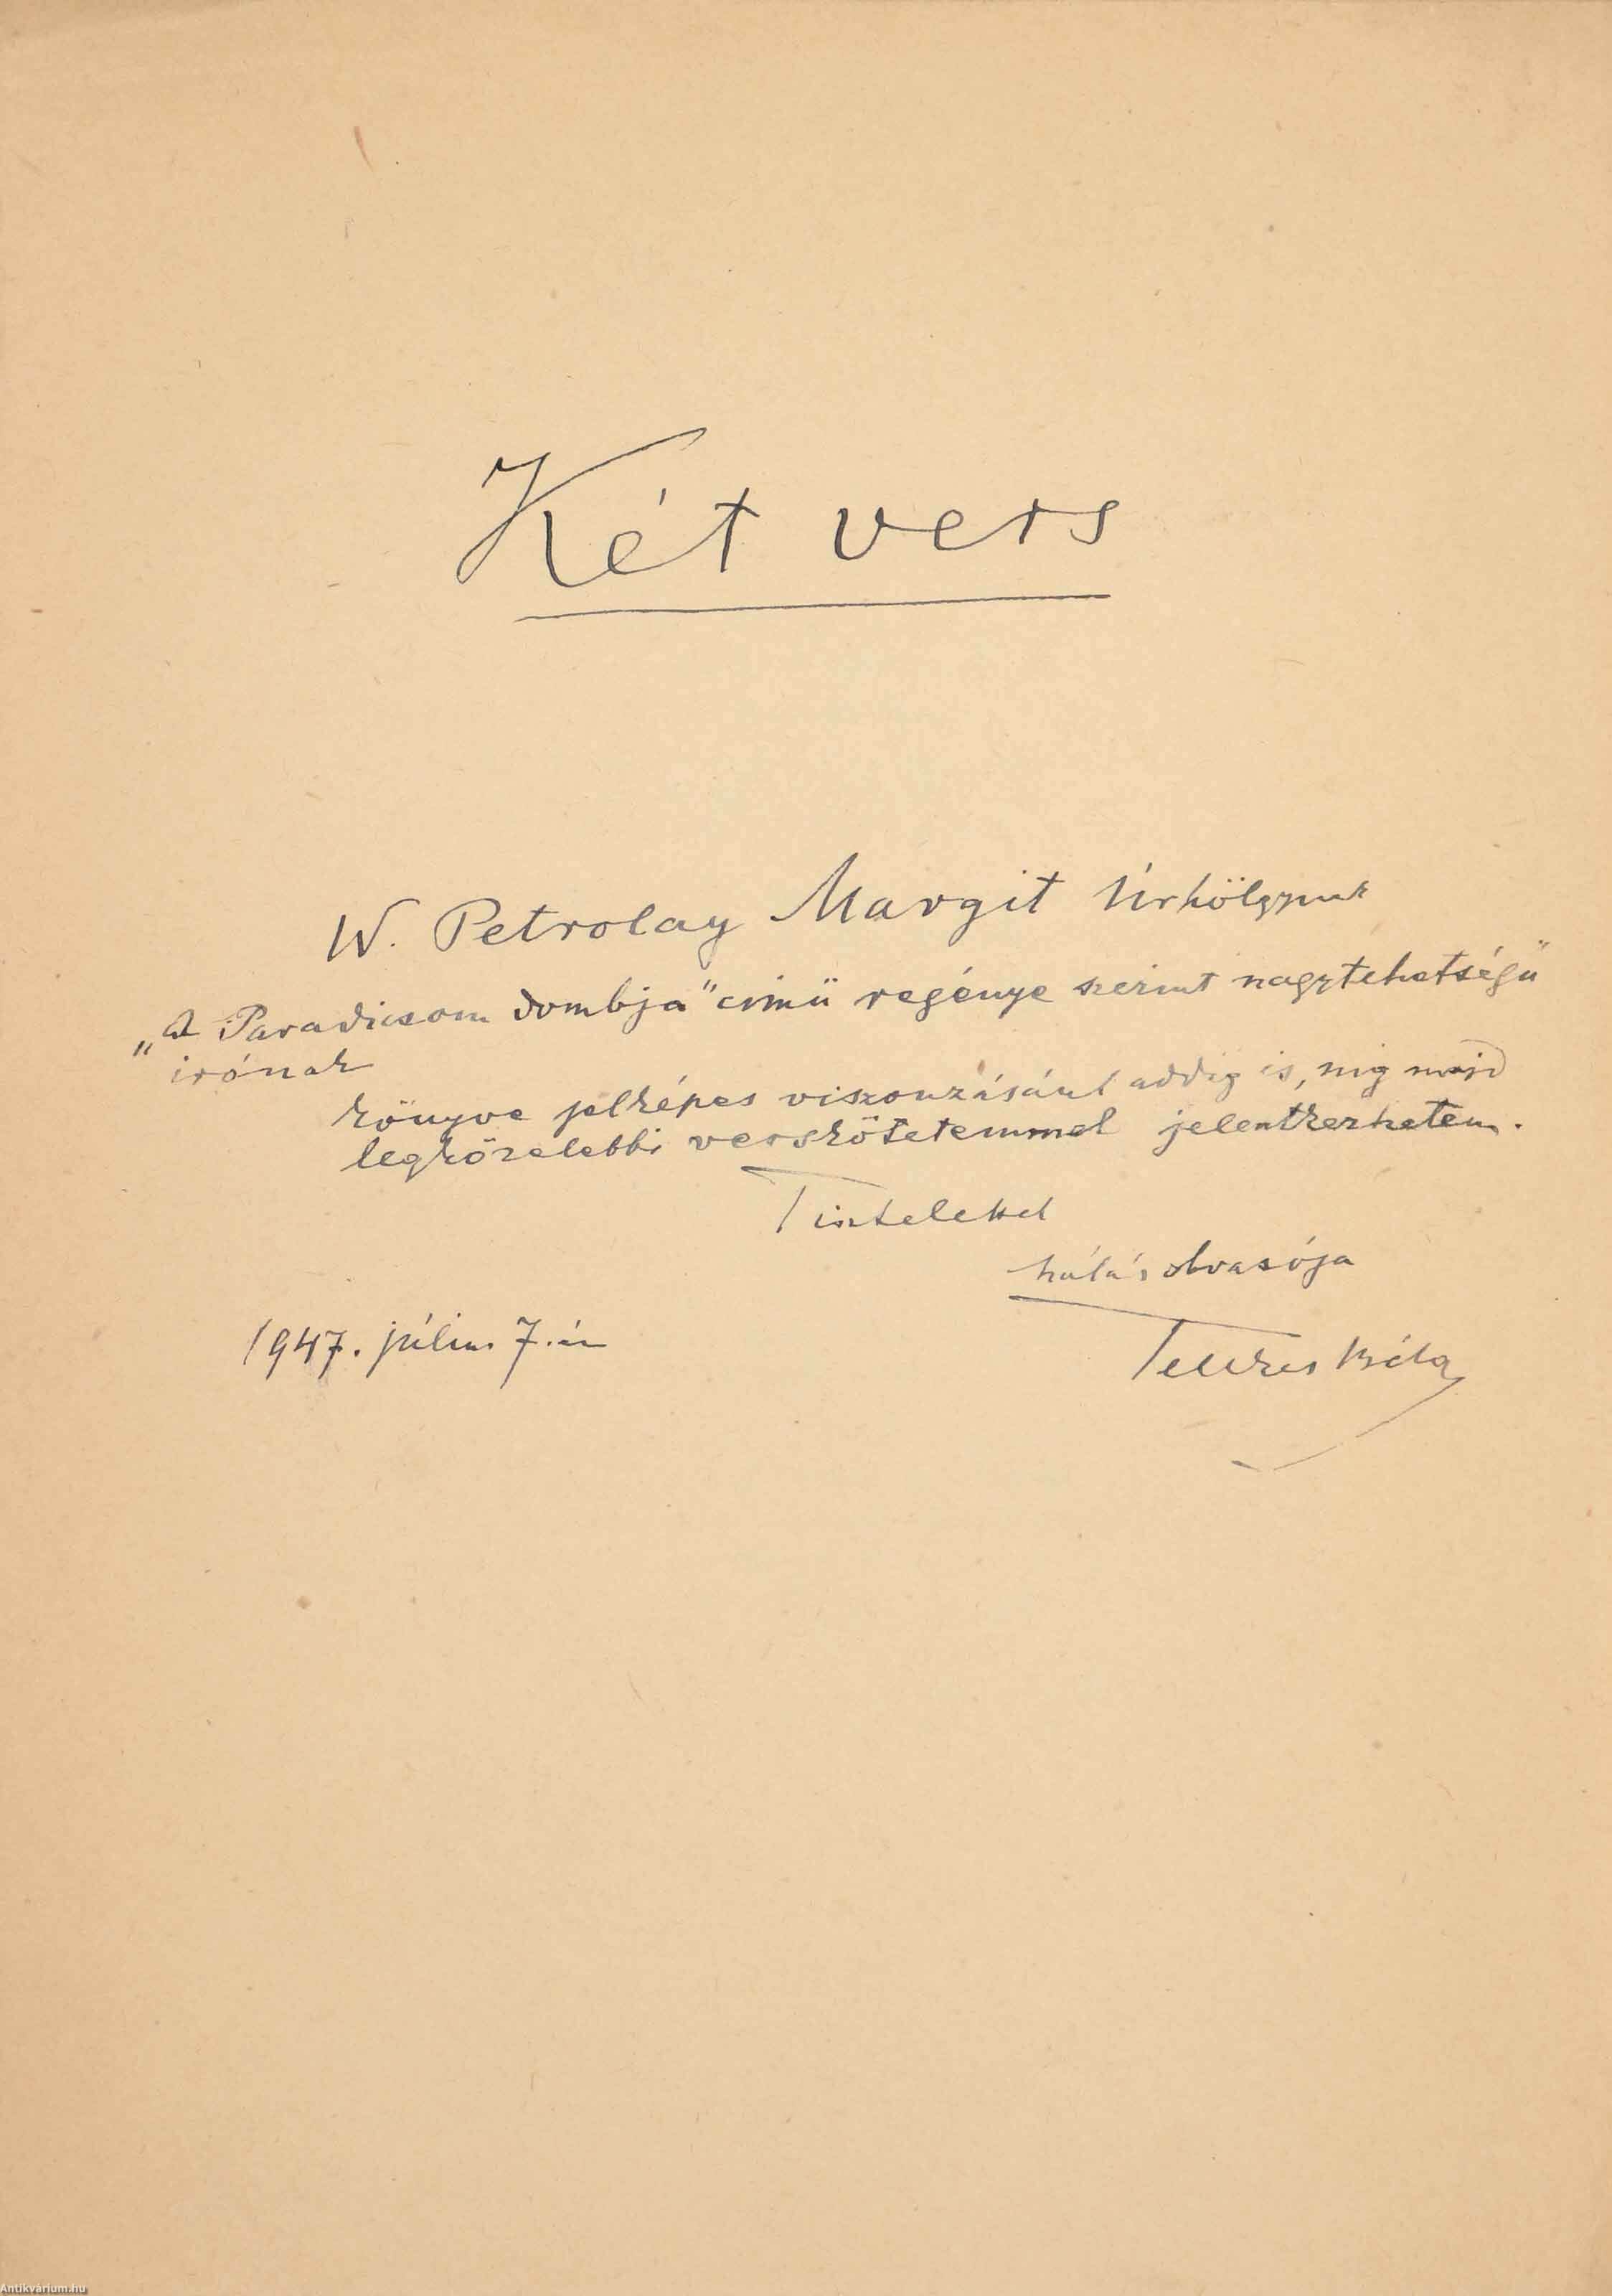 Két vers
W. Petrolay Margit Úrhölgynek
„A Paradicsom dombja" cimü regénye szerint nagytehetségü
irónak
könyve jelképes viszonzásául addig is, mig majd
legközelebbi verskötetemmel jelentkezhetem.
Tisztelettel
hálás olvasója
1947. július 7.-én
Telekes Béla
Antikvárium.hu